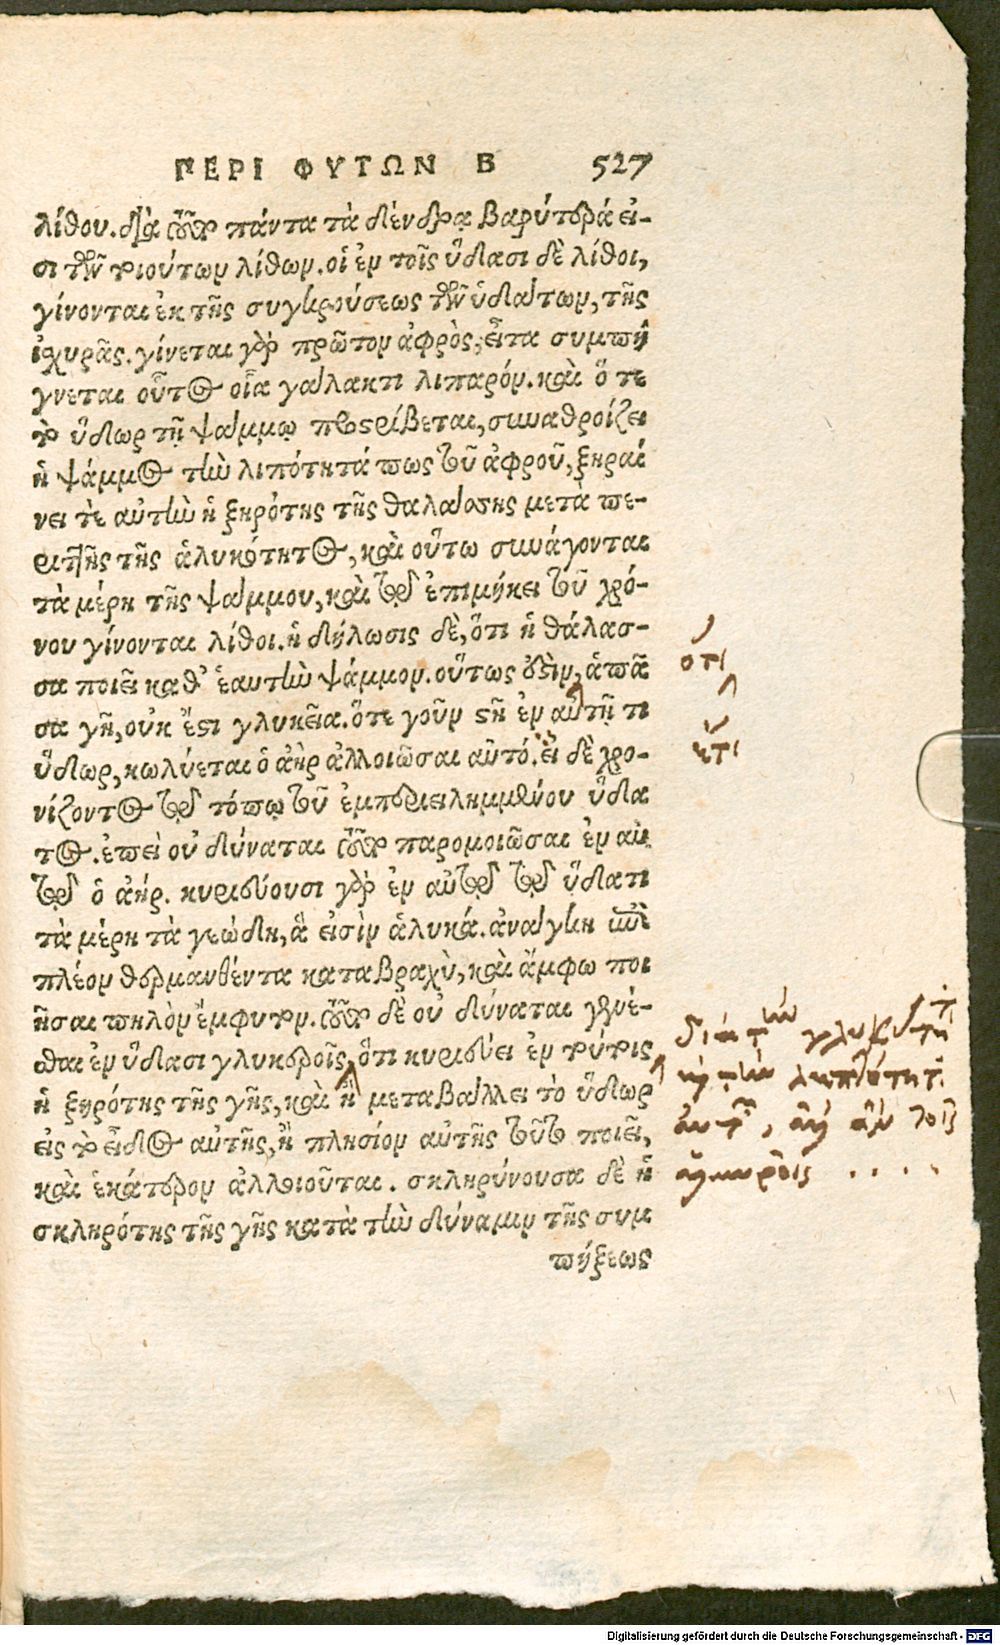 ΠΕΡΙ ΦΥΤΩΝ Β 527
λίθου. διὰ τοῦτο πάντα τὰ δένδρα βαρύτερά εἰ-
σι τῶν τοιούτων λίθων. οἱ ἐν τοῖς ὕδασι δὲ λίθοι,
γίνονται ἐκ τῆς συγκρούσεως τῶν ὑδάτων, τῆς
ἰσχυρᾶς. γίνεται γὰρ πρῶτον ἀφρὸς, εἶτα συμπή
γνεται οὗτος οἷα γάλακτι λιπαρόν. καὶ ὅτε
τὸ ὕδωρ τῇ ψάμμῳ προστρίβεται, συναθροίζει
ἡ ψάμμος τὴν λιπότητά πως τοῦ ἀφροῦ, ξηραί
νει τὲ αὐτὴν ἡ ξηρότης τῆς θαλάσσης μετὰ πε-
ριττῆς τῆς ἁλυκότητος, καὶ οὕτω συνάγονται
τὰ μέρη τῆς ψάμμου, καὶ τῷ ἐπιμήκει τοῦ χρό-
νου γίνονται λίθοι. ἡ δήλωσις δὲ, ὅτι ἡ θάλασ-
σα ποιεῖ καθ' ἑαυτὴν ψάμμον. οὕτως ἐστὶν, ἁπᾶ
σα γῆ, οὐκ ἔστι γλυκεῖα. ὅτε γοῦν στῇ ἐν αὐτῇ τι
ὕδωρ, κωλύεται ὁ ἀὴρ ἀλλοιῶσαι αὐτό. εἰ δὲ χρο-
νίζοντος τῷ τόπῳ τοῦ ἐμπεριειλημμένου ὕδα
τος. ἐπεὶ οὐ δύναται τοῦτο παρομοιῶσαι ἐν αὐ
τῷ ὁ ἀήρ. κυριεύουσι γὰρ ἐν αὐτῷ τῷ ὕδατι
τὰ μέρη τὰ γεώδη, ἅ εἰσὶν ἁλυκά. ἀνάγκη
πλέον θερμανθέντα καταβραχὺ, καὶ ἄμφω ποι
ῆσαι πηλὸν ἔμφυτον. τοῦτο δὲ οὐ δύναται γενέ-
σθαι ἐν ὕδασι γλυκεροῖς, ὅτι κυριεύει ἐν τούτοις
ἡ ξηρότης τῆς γῆς, καὶ ἢ μεταβάλλει τὸ ὕδωρ
εἰς τὸ εἶδος αὐτῆς, ἢ πλησίον αὐτῆς τοῦτο ποιεῖ,
καὶ ἑκάτερον ἀλλοιοῦται. σκληρύνουσα δὲ ἡ
σκληρότης τῆς γῆς κατὰ τὴν δύναμιν τῆς συμ
πήξεως
ὅτι
ἔτι
διὰ τὴν
καὶ τὴν
τοῖς